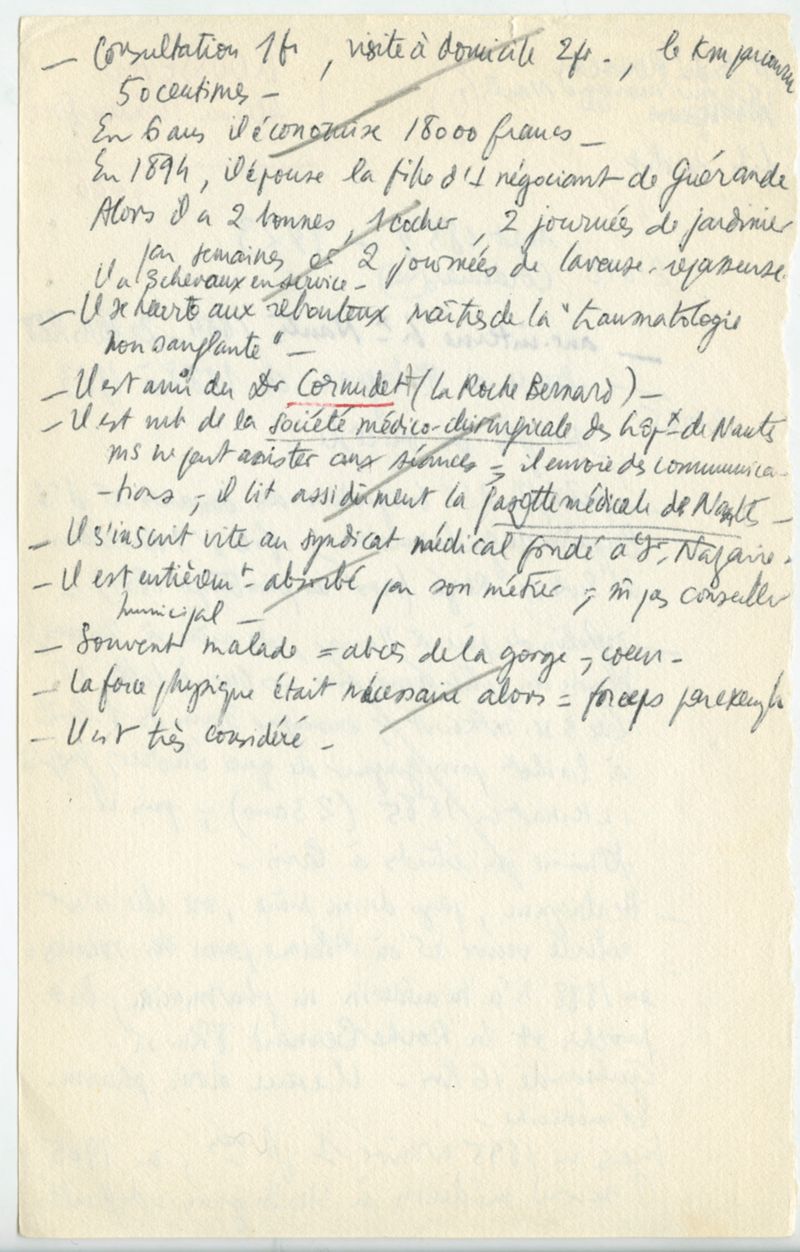 — Consultation 1 fr, visite à domicile 2 fr. , le Km parcouru
50 centimes —
En 6 ans il économise 18000 francs —
En 1894, il épouse la fille d'1 négociant de Guérande
Alors il a 2 bonnes, 1 cocher, 2 journées de jardinier
par semaines et 2 journées de laveuse-repasseuse.
Il a 3 chevaux en service —
— Il se heurte aux rebouteux maîtres de la "traumatologie
non sanglante" —
— Il est ami du Dr Cornudet (La Roche Bernard) —
— Il est mb de la société médico-chirurgicale des hôpx de Nantes
ms ne peut assister aux séances = il envoie des communica-
-tions ; il lit assidûment la gazette médicale de Nantes —
— Il s'inscrit vite au syndicat médical fondé à St. Nazaire.
— Il est entièremt absorbé par son métier ; n pas conseiller
municipal —
— Souvent malade = abcès de la gorge -, coeur -
— La force physique était nécessaire alors = forceps par exemple
— Il est très considéré —